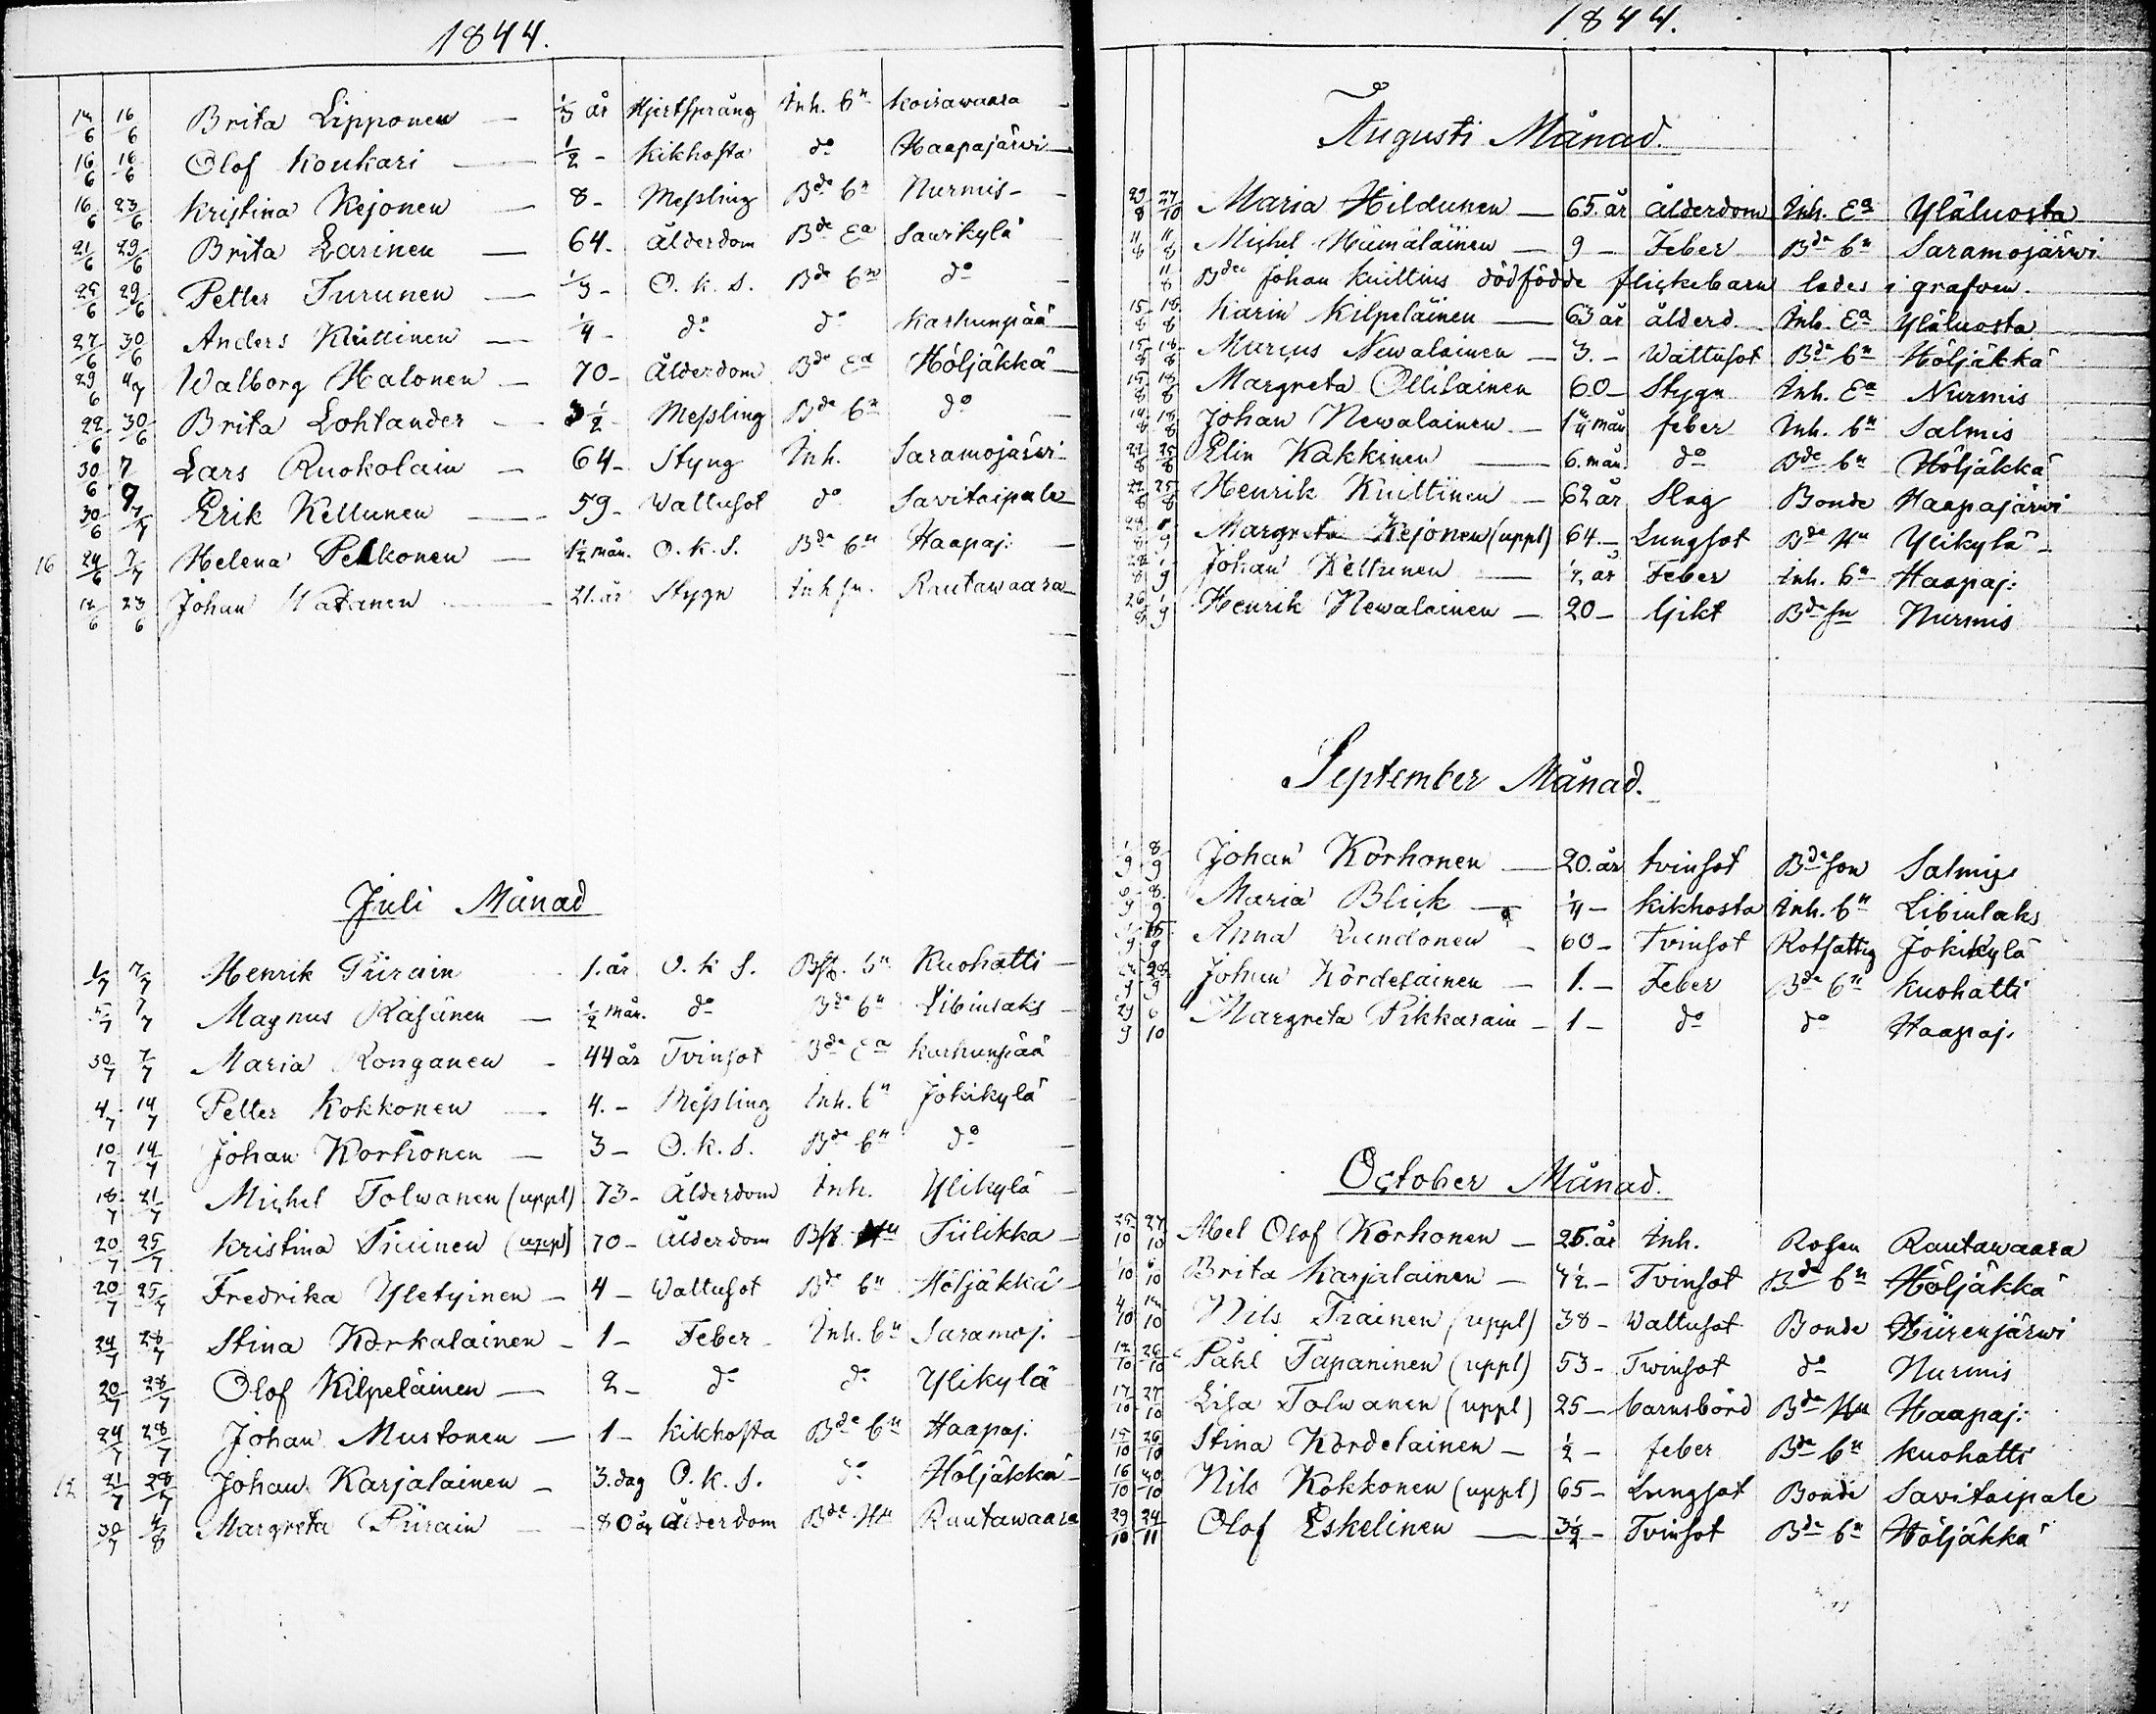 1844.
14/6 16/6 Brita Lipponen — 1/3 år Hjertsprång Inh. bn Koirawaara
16/6 16/6 Olof Koukari — 1/2 - Kikhosta do Haapajärwi
16/6 23/6 Kristina Kejonen — 8 - Messling Bde bn Nurmis
21/6 29/6 Brita Larinen — 64. Ålderdom Bde Ea Saurikylä
25/6 29/6 Petter Turunen — 1/3 - O. k. S. Bde bn do
27/6 30/6 Anders Kuittinen — 1/4 - do do Karhunpää
29/6 4/7 Walborg Halonen — 70 - Ålderdom Bde Ea Höljäkkä
22/6 30/6 Brita Lohtander — 3 1/2 Messling Bde bn do
30/6 7/7 Lars Ruokolain — 64 - Styng Inh. Saramojärwi
30/6 7/7 Erik Kettunen — 59 - Wattusot do Savitaipale
16 24/6 7/7 Helena Pelkonen — 1 1/2 mån. O. k. S. Bde bn Haapaj:
12/6 23/6 Johan Watanen — 21. år Stygn Inh sn. Rautawaara
Juli Månad
1/7 7/7 Henrik Piirain 1. år O. k S. Bfst. bn Kuohatti
5/7 7/7 Magnus Räsänen — 1/2 mån. do Bde bn Libinlaks
30/7 7/7 Maria Ronganen - 44 år Tvinsot Bde Ea Karhunpää
4/7 14/7 Petter Kokkonen — 4. - Messling Inh. bn Jokikylä
10/7 14/7 Johan Korhonen — 3 - O. k. S. Bde bn do
18/7 21/7 Michel Tolwanen (uppl) 73 - Ålderdom Inh. Ylikylä
20/7 25/7 Kristina Tiuinen (uppl) 70 - Ålderdom Bfst. Hu Tiilikka
20/7 25/7 Fredrika Yletyinen — 4 - Wattusot Bde bn Höljäkkä
24/7 28/7 Stina Korkalainen - 1 - Feber Inh. bn Saramoj.
20/7 28/7 Olof Kilpeläinen — 2 - do do Ylikylä
24/7 28/7 Johan Mustonen — 1 - Kikhosta Bde bn Haapaj.
12 21/7 28/7 Johan Karjalainen - 3. dag O. k. S. do Höljäkkä
30/7 4/8 Margreta Piirain — 80 år Ålderdom Bde Hu Rautawaara
1844.
Augusti Månad.
29/8 27/10 Maria Hildunen — 65. år Ålderdom Inh. Ea Yläluosta
11/8 11/8 Michel Hämäläinen — 9 - Feber Bde bn Saramojärwi
11/8 Bden Johan Kuittins dödfödde flickebarn lades i grafven.
15/8 18/8 Karin Kilpeläinen — 63 år ålderd. Inh. Ea Yläluosta
15/8 18/8 Marcus Newalainen — 3. - Wattusot Bde bn Höljäkkä
15/8 18/8 Margreta Ollilainen 60 - Stygn Inh. Ea Nurmis
14/8 18/8 Johan Newalainen — 1 1/4 mån feber Inh. bn Salmis
22/8 25/8 Elin Kakkinen — 6. mån. do Bde bn Höljäkkä
22/8 25/8 Henrik Kuittinen — 62 år Slag Bonde Haapajärwi
Margreta Kejonen (uppl) 64. - Lungsot Bde Hu Ylikylä
Johan Kettunen — 1/2 år Feber Inh. bn Haapaj:
26/8 1/9 Henrik Newalainen — 20 - Gikt Bde sn Nurmis
September Månad.
1/9 8/9 Johan Korhonen — 20. år tvinsot Bde son Salmis
8/9 Maria Blick — 1/4 - Kikhosta Inh. bn Libinlaks
15/9 Anna Lundonen - 60 - Tvinsot Rotfattig Jokikylä
Johan Kördeläinen — 1. - Feber Bde bn Kuohatti
29/9 6/10 Margreta Pikkarain - 1 - do do Haapaj.
October Månad.
25/10 27/10 Abel Olof Korhonen — 25. år Inh. Rosen Rautawaara
1/10 6/10 Brita Karjalainen — 7 1/2 - Tvinsot Bde bn Höljäkkä
4/10 Nils Tiainen (uppl) 38 - Wattusot Bonde Hiirenjärwi
12/10 26/10 Påhl Tapaninen (uppl) 53 - Twinsot do Nurmis
17/10 27/10 Lisa Tolwanen (uppl) 25 - barnsbörd Bde Hu Haapaj:
15/10 26/10 Stina Kördelainen — 1/2 - feber Bde bn Kuohatti
16/10 Nils Kokkonen (uppl) 65 - Lungsot Bonde Savitaipale
29/10 24/11 Olof Eskelinen — 3 1/2 - Tvinsot Bde bn Höljäkkä